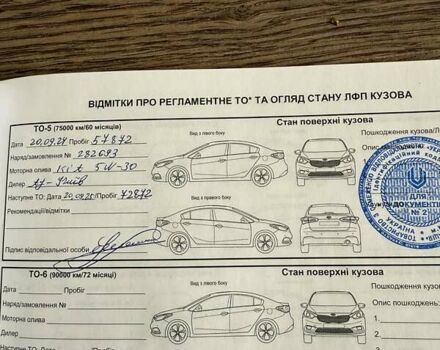 ВІДМІТКИ ПРО РЕГЛАМЕНТНЕ ТО* ТА ОГЛЯД СТАНУ ЛФП КУЗОВА
ТО-5 (75000 км/60 місяців)
Стан поверхні кузова
Дата 20.09.24 Пробіг 57872
Вид з лівого боку
Пошкодження кузова/Ла
Наряд/замовлення № 282693
Опис
Моторна олива Kixx 5W-30
Дилер Київ
Наступне ТО: Дата 20.09.25/Пробіг 72872
Вид з правого боку
Рекомендації/відмітки
Підпис відповідальної особи
ДЛЯ
ДОКУМЕНТІВ
№ 2
УКРАЇНА
ТОВАРИСТВО З
Ідентифікаційний код
ТО-6 (90000 км/72 місяці)
Стан поверхні кузова
Дата Пробіг
Вид з лівого боку
Пошкодження кузова/
Наряд/замовлення №
Опис пошкоджень:
Моторна олива
1
Дилер
2
3